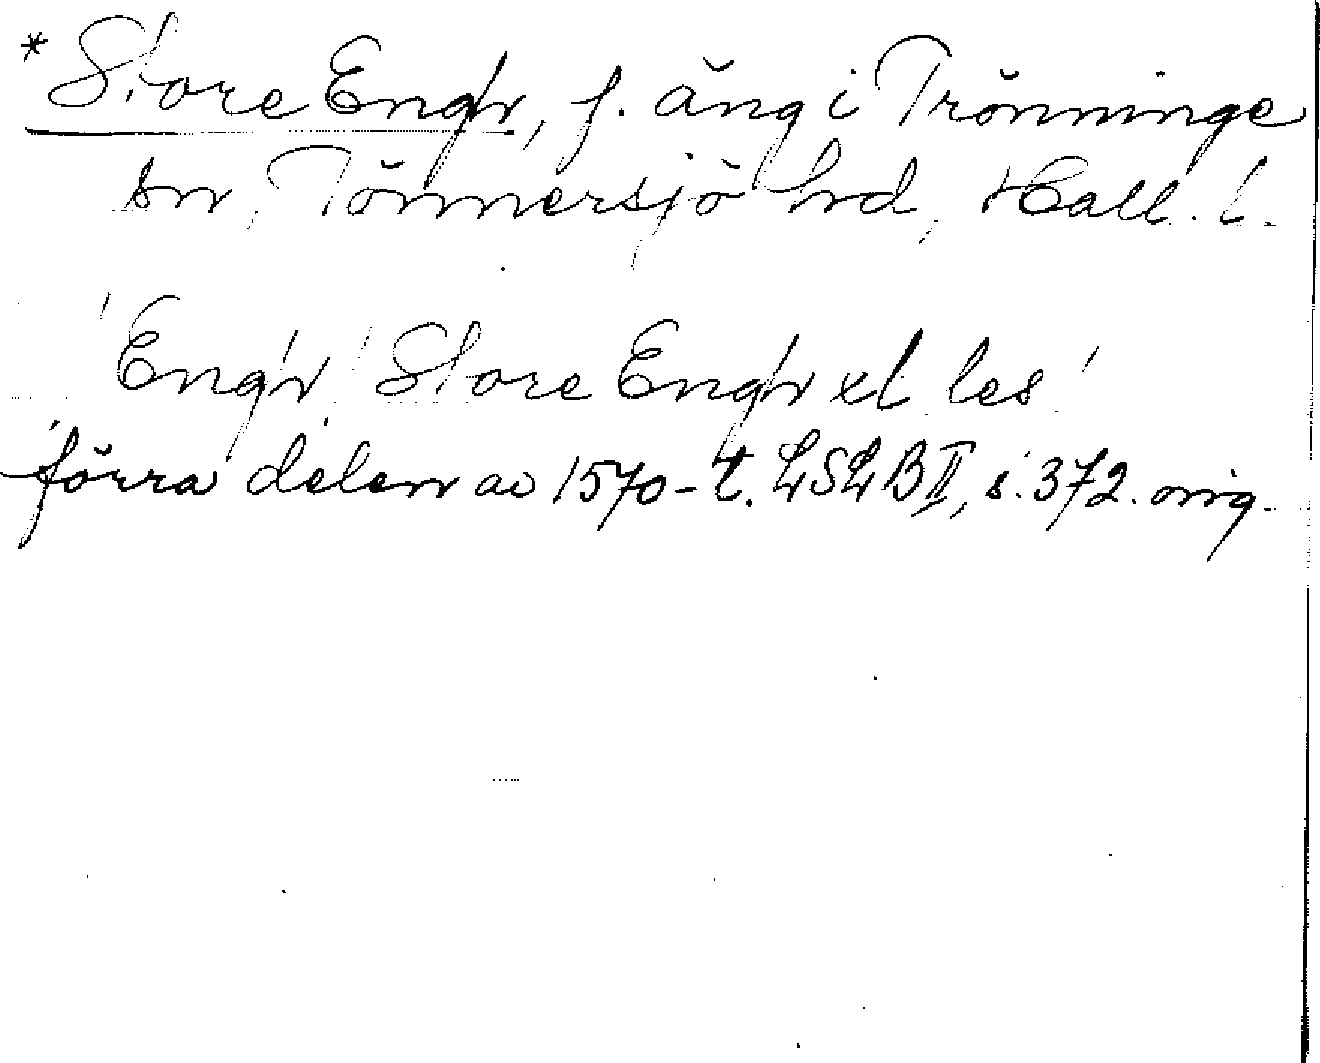 *Store Engr, f. äng i Trönninge
sn, Tönnersjö hd, Hall. l.
'Engr' 'Store Engr xl les'
förra delen av 1570-t. LSLB II, s. 372. orig.